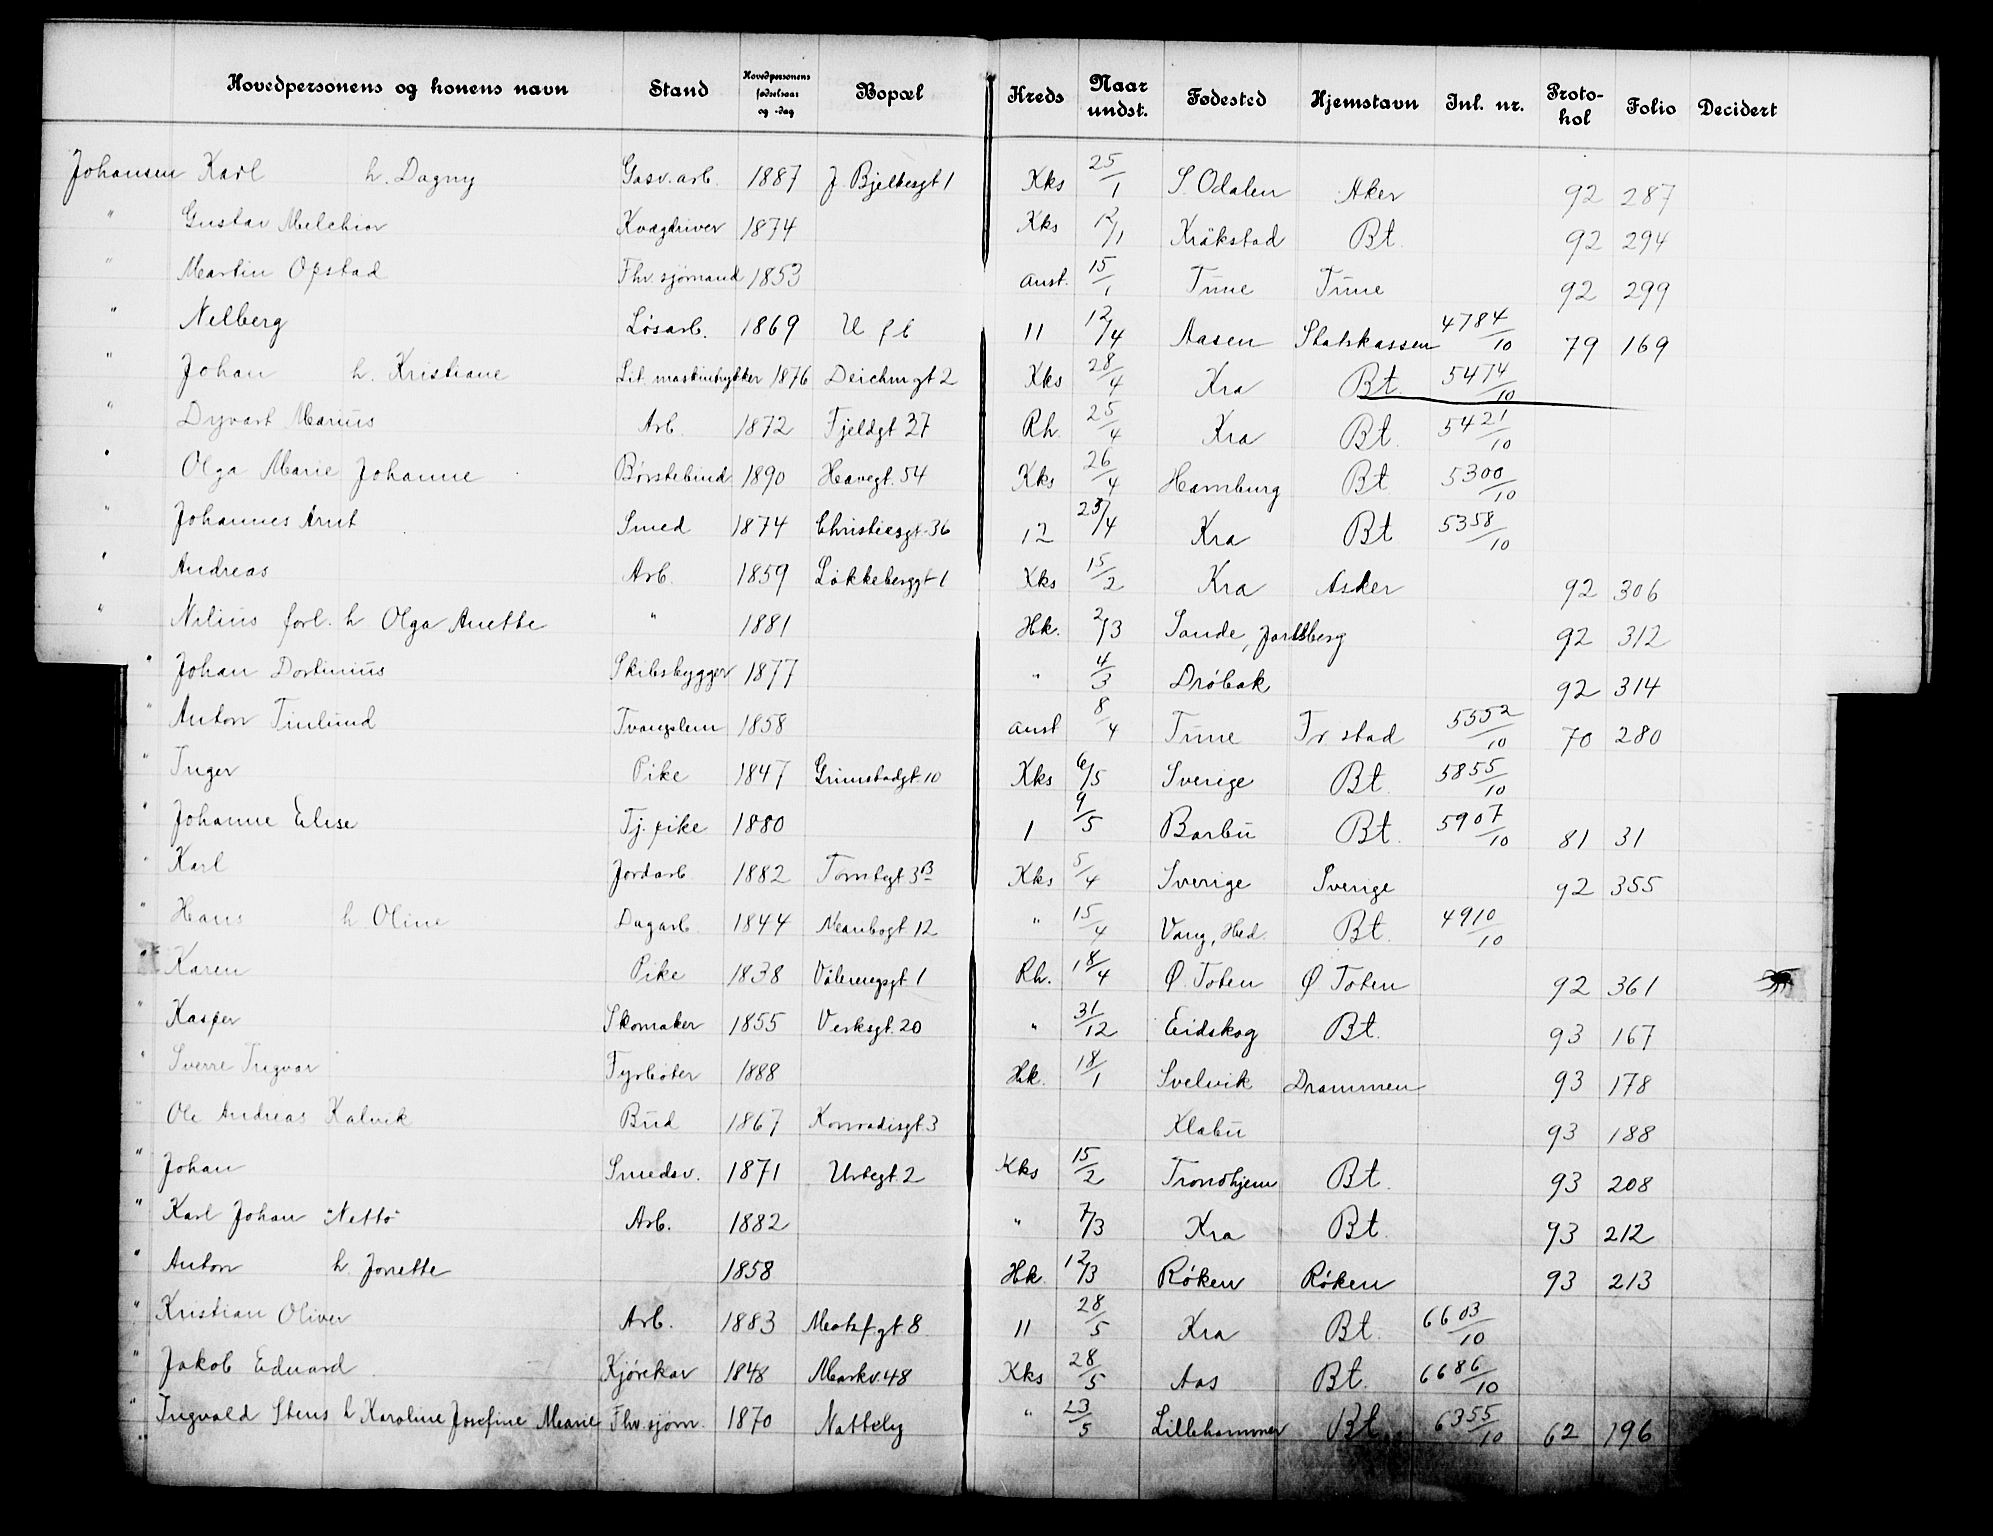 Hovedpersonens og konens navn Stand Hovedpersonens fødselsaar og -dag Bopæl Kreds Naar undst. Fødested Hjemstavn Inl. nr. Protokol Folio Decidert
Johansen Karl h. Dagny Gasv. arb. 1887 J. Bjelkesgt 1 Kks 25/1 S. Odalen Aker 92 287
" Gustav Melchior Kvægdriver 1874 Kks 12/1 Kråkstad Bt. 92 294
" Martin Opstad Fhv. sjømand 1853 anst. 15/1 Tune Tune 92 299
" Nelberg Løsarb. 1869 U f b 11 12/4 Aasen Statskassen 4784/10 79 169
" Johan h. Kristiane Lit. maskintrykker 1876 Deichmgt 2 Kks 28/4 Kra Bt. 5474/10
" Dyvart Marius Arb. 1872 Fjeldgt 37 Rh. 25/4 Kra Bt. 5421/10
" Olga Marie Johanne Børstebind 1890 Havegt. 54 Kks 26/4 Hamburg Bt 5300/10
" Johannes Arnt Smed 1874 Christiesgt. 36 12 /4 Kra Bt 5358/10
" Andreas Arb. 1859 Løkkeberggt 1 Kks 15/2 Kra Asker 92 306
" Nilius forl. h Olga Anette " 1881 Hk. 2/3 Sande, Jarlsberg 92 312
" Johan Dortinius Skibsbygger 1877 " 4/3 Drøbak 92 314
" Anton Tinlund Tvangslem 1858 anst 8/4 Tune Fr. stad 5552/10 70 280
" Inger Pike 1847 Grimstadgt 10 Kks 6/5 Sverige Bt. 5855/10
" Johanne Elise Tj. pike 1880 1 9/5 Barbu Bt. 5907/10 81 31
" Karl Jordarb 1882 Tomtegt 3B Kks 5/4 Sverige Sverige 92 355
" Hans h Oline Dagarb. 1844 Maribogt 12 " 15/4 Vang, Hed. Bt. 4910/10
" Karen Pike 1838 Vålerengsgt 1 Rh. 18/4 Ø. Toten Ø Toten 92 361
" Kasper Skomaker 1855 Verksgt. 20 " 31/12 Eidskog Bt. 93 167
" Sverre Ingvar Fyrbøter 1888 Hk. 18/1 Svelvik Drammen 93 178
" Ole Andreas Kalvik Bud 1867 Konradisgt 3 Klæbu 93 188
" Johan Smedsv. 1871 Urtegt. 2 Kks 15/2 Trondhjem Bt. 93 208
" Karl Johan "Netto" Arb. 1882 " 7/3 Kra Bt. 93 212
" Anton h. Jonette 1858 Hk 12/3 Røken Røken 93 213
" Kristian Oliver Arb. 1883 Motzfgt 8 11 28/5 Kra Bt. 6603/10
" Jakob Edvard Kjørekar 1848 Markv. 48 Kks 28/5 Aas Bt. 6686/10
" Ingvald Stens h Karoline Josefine Marie Fhv. sjøm. 1870 Nattely " 23/5 Lillehammer Bt 6355/10 62 196